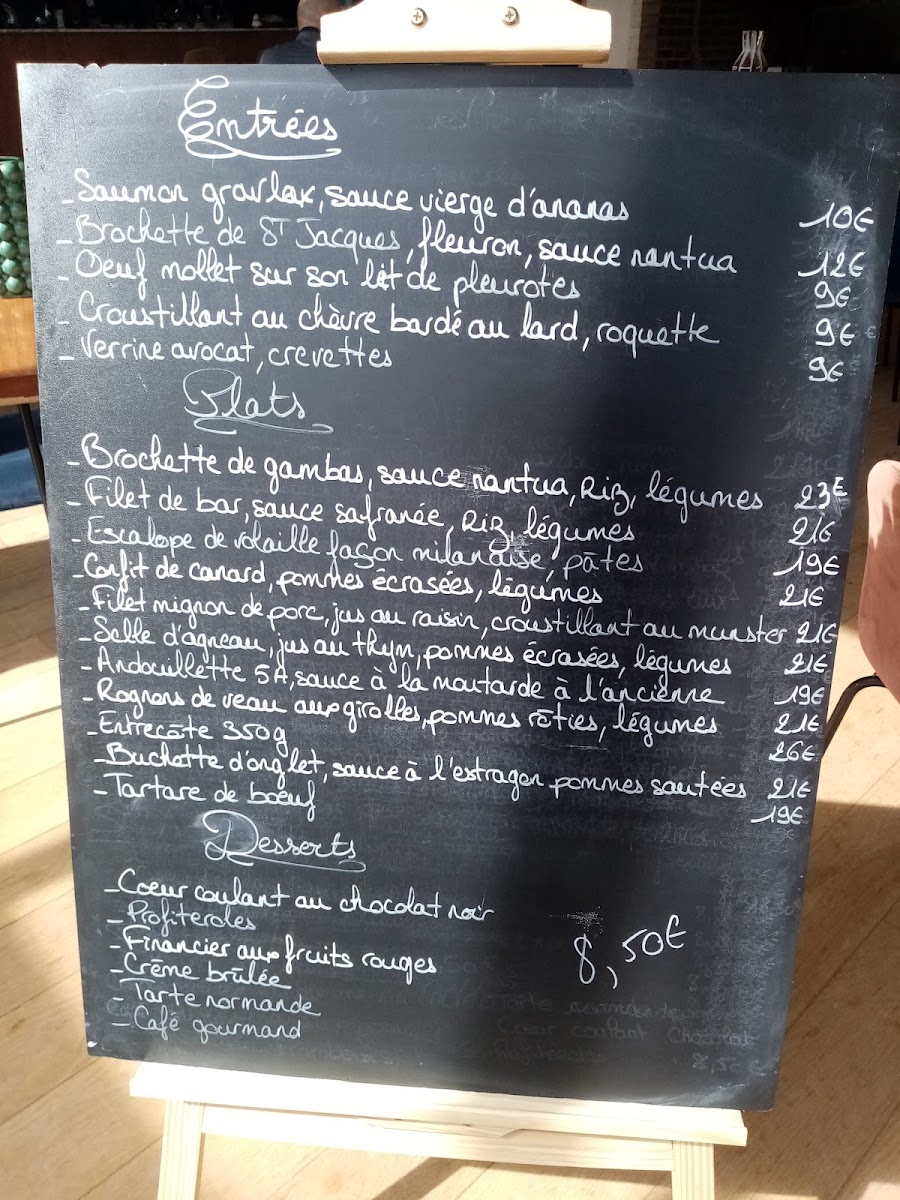 Entrées
- Saumon gravlax, sauce vierge d'ananas 10€
- Brochette de St Jacques, fleuron, sauce nantua 12€
- Oeuf mollet sur son lit de pleurotes 9€
- Croustillant au chèvre bardé au lard, roquette 9€
- Verrine avocat, crevettes 9€
Plats
- Brochette de gambas, sauce nantua, Riz, légumes 23€
- Filet de bar, sauce safranée, Riz, légumes 21€
- Escalope de volaille façon milanaise, pâtes 19€
- Confit de canard, pommes écrasées, légumes 21€
- Filet mignon de porc, jus au raisin, croustillant au munster 21€
- Selle d'agneau, jus au thym, pommes écrasées, légumes 21€
- Andouillette 5A, sauce à la moutarde à l'ancienne 19€
- Rognons de veau aux girolles, pommes rôties, légumes 21€
- Entrecôte 350g 26€
- Buchette d'onglet, sauce à l'estragon pommes sautées 21€
- Tartare de boeuf 19€
Desserts
- Coeur coulant au chocolat noir
- Profiteroles
- Financier aux fruits rouges
8,50€
- Crème brûlée
- Tarte normande
- Café gourmand
Coeur coulant Chocolat
Profiteroles
8,50€